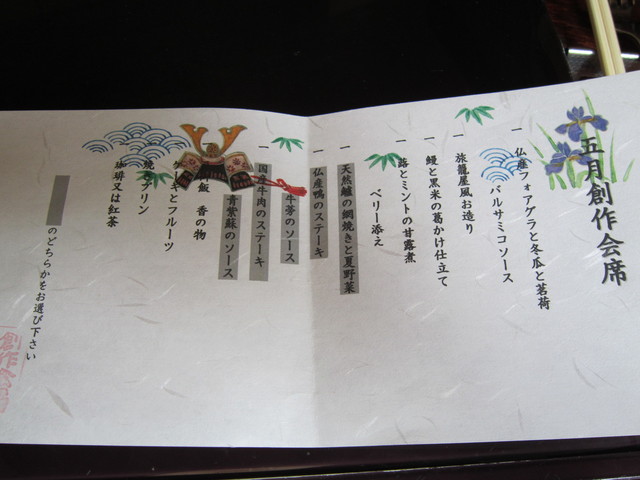 五月創作会席
一 仏産フォアグラと冬瓜と茗荷
バルサミコソース
一 旅籠屋風お造り
一 鰻と黒米の葛かけ仕立て
一 蕗とミントの甘露煮
ベリー添え
一 天然鱸の網焼きと夏野菜
一 仏産鴨のステーキ
牛蒡のソース
一 国産牛肉のステーキ
青紫蘇のソース
飯 香の物
ケーキとフルーツ
焼きプリン
珈琲又は紅茶
のどちらかをお選び下さい